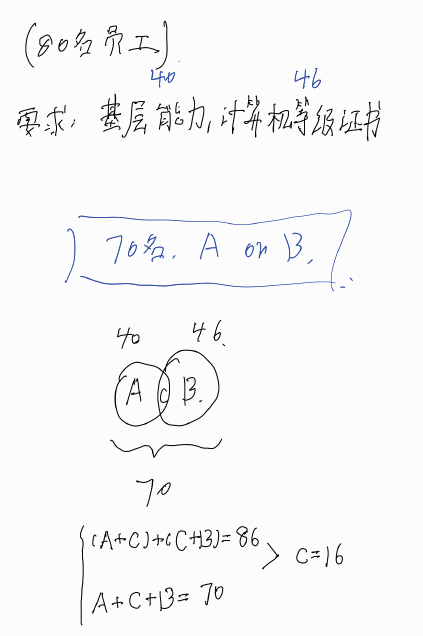 (80名员工)
40 46
要求: 基层能力, 计算机等级证书
70名. A or B.
40 46.
A C B.
70
(A+C)+(C+B)=86
C=16
A+C+B=70